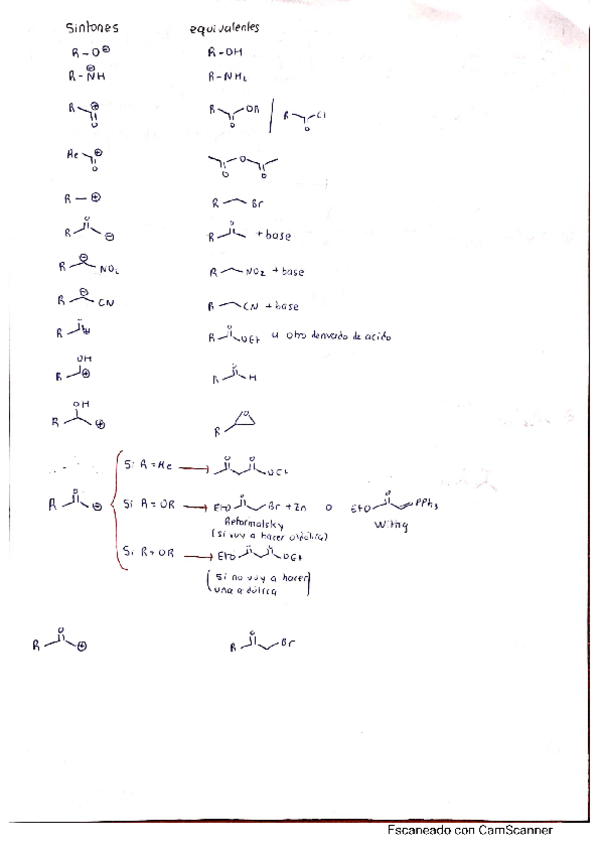 Sintones equivalentes
R-O⊖ R-OH
R-N⊖H R-NH₂
R ⊕ O R OR O / R Cl O
Me ⊕ O O O O
R-⊕ R Br
R O ⊖ R O + base
R ⊖ NO₂ R NO₂ + base
R ⊖ CN R CN + base
R O ⊕ R O OEt u otro derivado de acido
R OH ⊕ R O H
R OH ⊕ R O
Si R = Me → O O OEt
R O ⊖ Si R = OR → EtO O Br + Zn o EtO O PPh₃
Reformatsky Wittig
(si voy a hacer aldólica)
Si R = OR → EtO O O OEt
(si no voy a hacer
una aldólica)
R O ⊕ R O Br
Escaneado con CamScanner